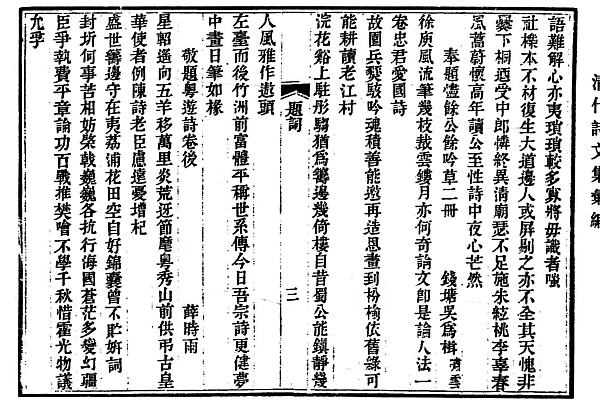 清代詩文集彙編
語難解心亦夷瑣瑣較多寡將毋識者嗤
社櫟本不材復生大道邊人或屏剔之亦不全其天愧非
爨下桐迺受中郎憐終異清廟瑟不足施朱絃桃李辜春
風蓄蔚懷高年讀公至性詩中夜心茫然
奉題憶餘公餘吟草二冊
錢塘吳爲楫齊雪
徐庾風流筆幾枝裁雲鏤月亦何奇論文卽是論人法一
卷忠君愛國詩
故園兵燹駭吟魂積善能邀再造恩畫到枌榆依舊綠可
能耕讀老江村
浣花谿上駐彤騶猶爲籌邊幾倚樓自昔蜀公能鎭靜幾
題詞
三
人風雅作遨頭
左臺而後竹洲前富體平稱世系傳今日吾宗詩更健夢
中晝日筆如椽
敬題粵遊詩卷後
薛時雨
星軺遙向五羊移萬里炎荒迓節麾粵秀山前供弔古皇
華使者例陳詩老臣慮遠憂增杞
盛世籌邊守在夷荔浦花田空自好錦囊曾不貯姸詞
封圻何事苦相妨棨戟巍巍各抗行海國蒼茫多變幻疆
臣爭執費平章論功百戰推樊噲不學千秋惜霍光物議
允孚